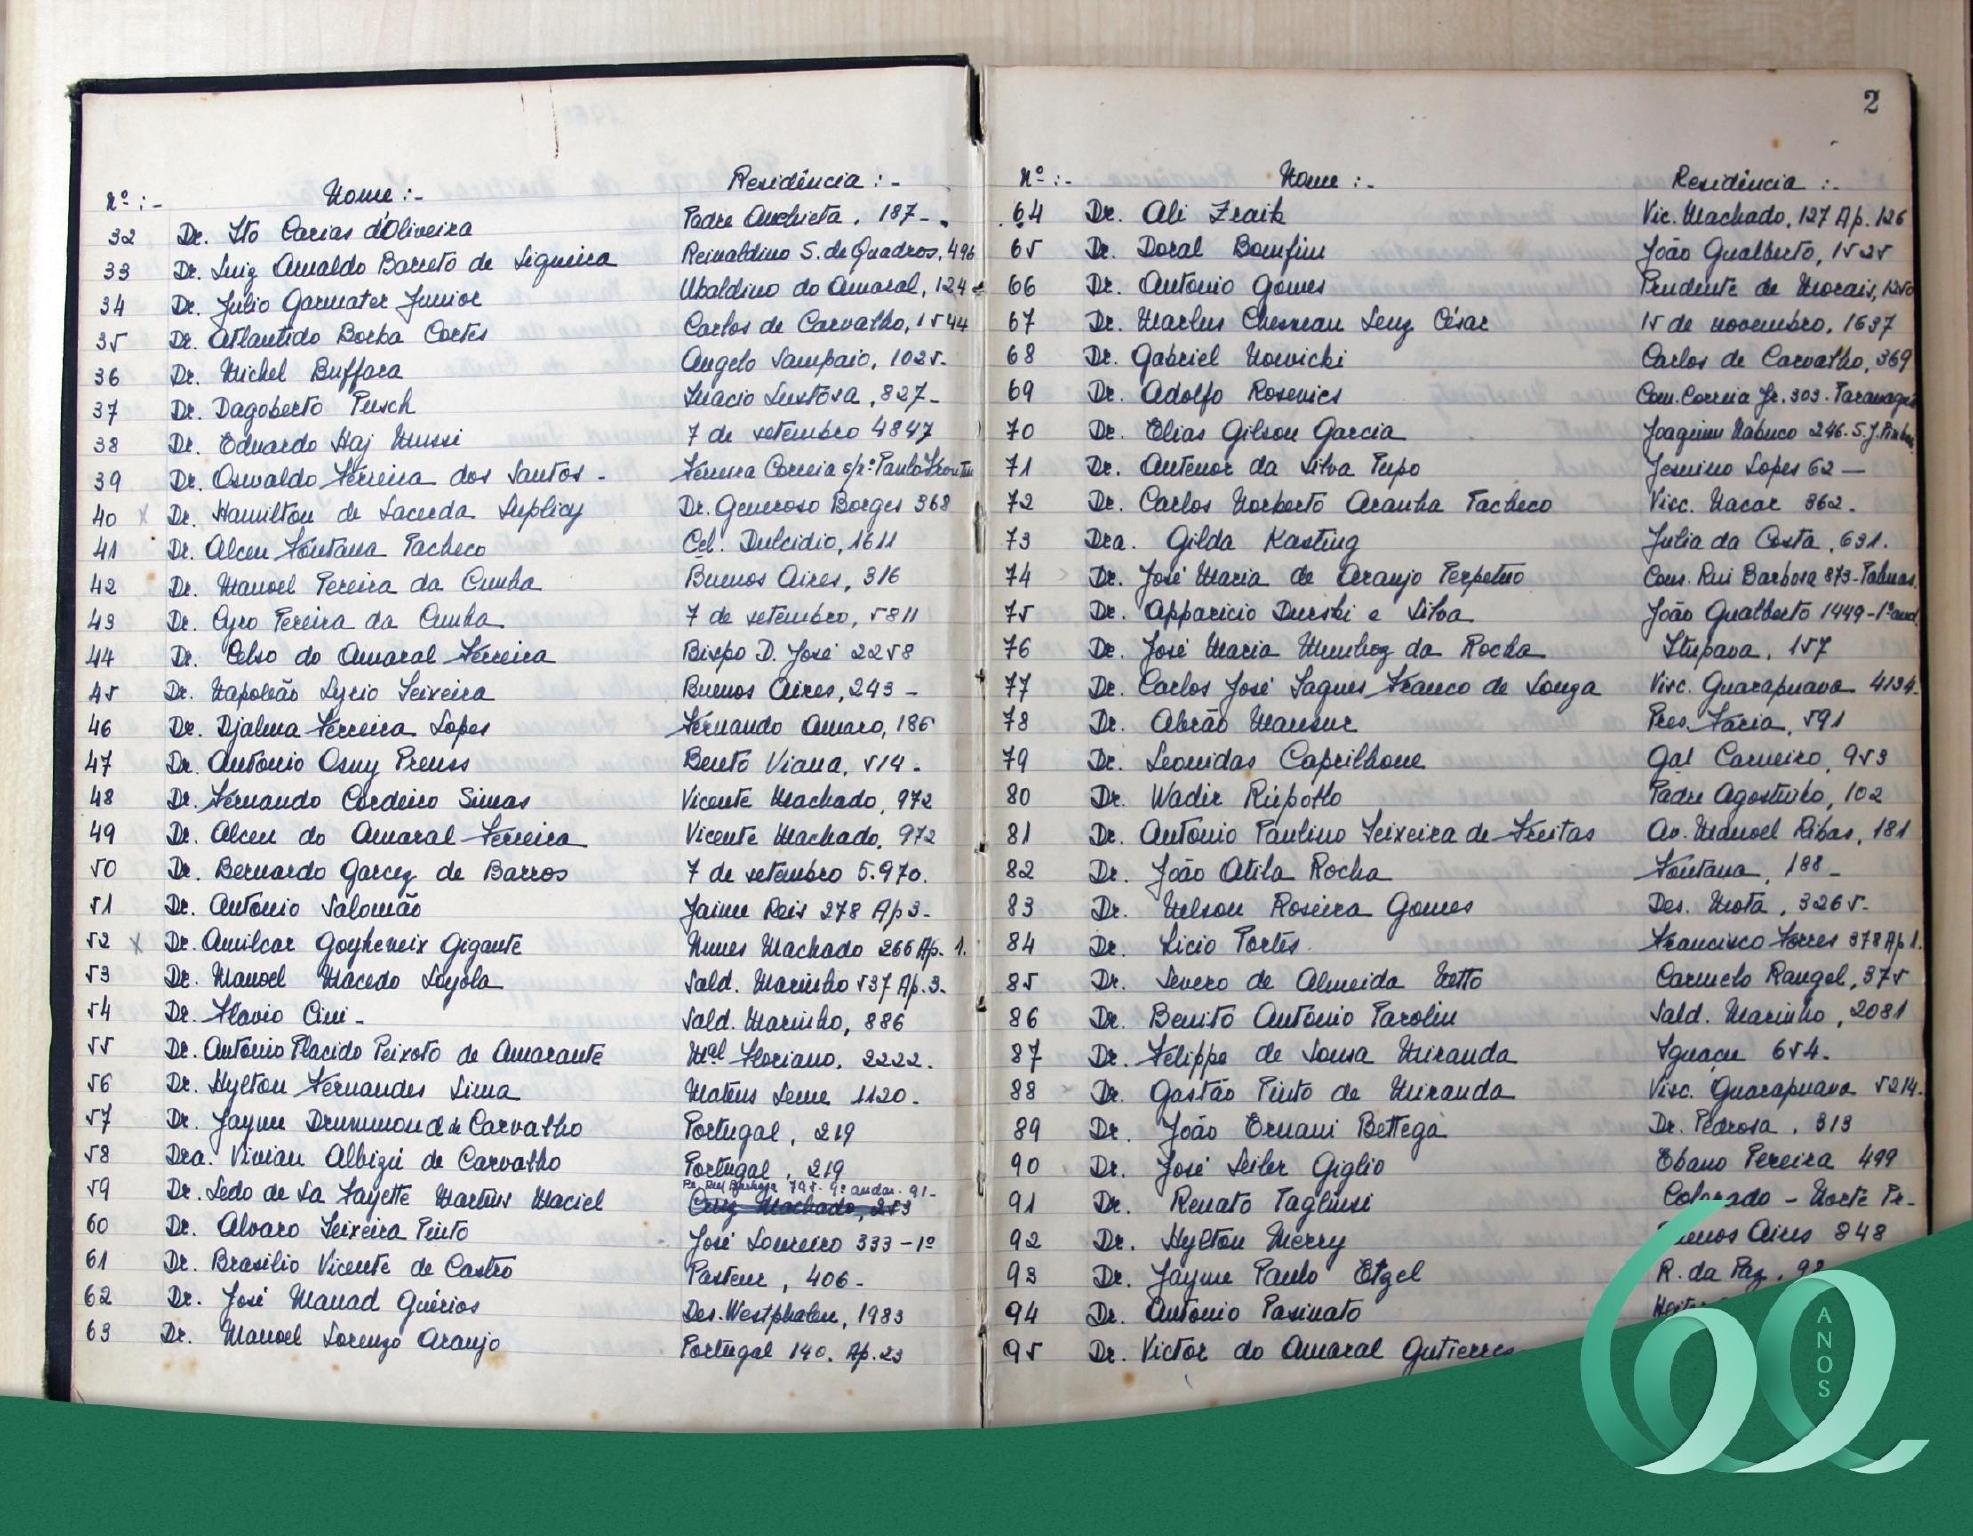 Nº :- Nome :- Residência :-
32 Dr. Ito Carias d'Oliveira Padre Anchieta, 187-
33 Dr. Luiz Arnaldo Barreto de Siqueira Reinaldino S. de Quadros, 496
34 Dr. Julio Garmater Junior Ubaldino do Amaral, 124
35 Dr. Atlantido Borba Cortes Carlos de Carvalho, 1544
36 Dr. Michel Buffara Angelo Sampaio, 1025-
37 Dr. Dagoberto Pusch Inacio Lustosa, 827-
38 Dr. Eduardo Haj Mussi 7 de setembro 4847
39 Dr. Oswaldo Ferreira dos Santos - Ferreira Correia
40 x Dr. Hamilton de Lacerda Suplicy Dr. Generoso Borges 368
41 Dr. Alceu Fontana Pacheco Cel. Dulcidio, 1611
42 Dr. Manoel Pereira da Cunha Buenos Aires, 316
43 Dr. Cyro Pereira da Cunha 7 de setembro, 5811
44 Dr. Celso do Amaral Ferreira Bispo D. José 2258
45 Dr. Napoleão Lyrio Teixeira Buenos Aires, 243 -
46 Dr. Djalma Ferreira Lopes Fernando Amaro, 186
47 Dr. Antonio Osny Preuss Bento Viana, 514.
48 Dr. Fernando Cordeiro Simas Vicente Machado, 972
49 Dr. Alceu do Amaral Ferreira Vicente Machado, 972
50 Dr. Bernardo Garcez de Barros 7 de setembro 5.970.
51 Dr. Antônio Salomão Jaime Reis 278 Ap 3-
52 x Dr. Amilcar Goyheneix Gigante Nunes Machado 266 Ap. 1.
53 Dr. Manoel Macedo Loyola Sald. Marinho 537 Ap. 3.
54 Dr. Flavio Cini - Sald. Marinho, 886
55 Dr. Antonio Placido Peixoto de Amarante Mal Floriano, 2222.
56 Dr. Hylton Fernandes Lima Mateus Leme 1120.
57 Dr. Jayme Drummond de Carvalho Portugal, 219
58 Dra. Vivian Albizú de Carvalho Portugal, 219
59 Dr. Ledo de La Fayette Martins Maciel Cruz Machado, 253
60 Dr. Alvaro Teixeira Pinto José Loureiro 333 - 1º
61 Dr. Brasilio Vicente de Castro Pasteur, 406-
62 Dr. José Manad Guérios Des. Westphalen, 1983
63 Dr. Manoel Lorenzo Araujo Portugal 140. Ap. 23
2
Nº :- Nome :- Residência :-
64 Dr. Ali Zraik Vic. Machado, 127 Ap. 126
65 Dr. Doral Bomfim João Gualberto, 1525
66 Dr. Antonio Gomes Prudente de Morais, 1250
67 Dr. Marlus Chesneau Lenz César 15 de novembro, 1637
68 Dr. Gabriel Nowicki Carlos de Carvalho, 369
69 Dr. Adolfo Rosevics Com. Correia Jr. 303 - Paranaguá
70 Dr. Elias Gilson Garcia Joaquim Nabuco 246. S. J.
71 Dr. Antenor da Silva Pupo Jesuino Lopes 62 —
72 Dr. Carlos Norberto Aranha Pacheco Visc. Nacar 862.
73 Dra. Gilda Kasting Julia da Costa, 631.
74 Dr. José Maria de Araujo Perpetuo Cons. Rui Barbosa 873 - Palmas.
75 Dr. Apparicio Durski e Silva João Gualberto 1449 - 1º and.
76 Dr. José Maria Munhoz da Rocha Itupava, 157
77 Dr. Carlos José Jaques Franco de Souza Visc. Guarapuava 4134-
78 Dr. Abrão Mansur Pres. Faria, 591
79 Dr. Leonidas Caprilhone Gal Carneiro, 953
80 Dr. Wadir Rúpollo Padre Agostinho, 102
81 Dr. Antônio Paulino Teixeira de Freitas Av. Manoel Ribas, 181
82 Dr. João Atila Rocha Fontana, 188 -
83 Dr. Nelson Roseira Gomes Des. Mota, 3265-
84 Dr. Licio Portes. Francisco Torres 378 Ap 1.
85 Dr. Severo de Almeida Netto Carmelo Rangel, 375
86 Dr. Benito Antônio Parolin Sald. Marinho, 2081
87 Dr. Felippe de Sousa Miranda Iguaçu 654.
88 Dr. Gastão Pinto de Miranda Visc. Guarapuava 5214.
89 Dr. João Ernani Bettega Dr. Pedrosa, 313
90 Dr. José Leiler Giglio Ebano Pereira 499
91 Dr. Renato Tagliusi Colorado - Norte Pr-
92 Dr. Hylton Merry Buenos Aires 848
93 Dr. Jayme Paulo Etzel R. da Paz,
94 Dr. Antonio Pasinato
95 Dr. Victor do Amaral Gutierres
60 ANOS